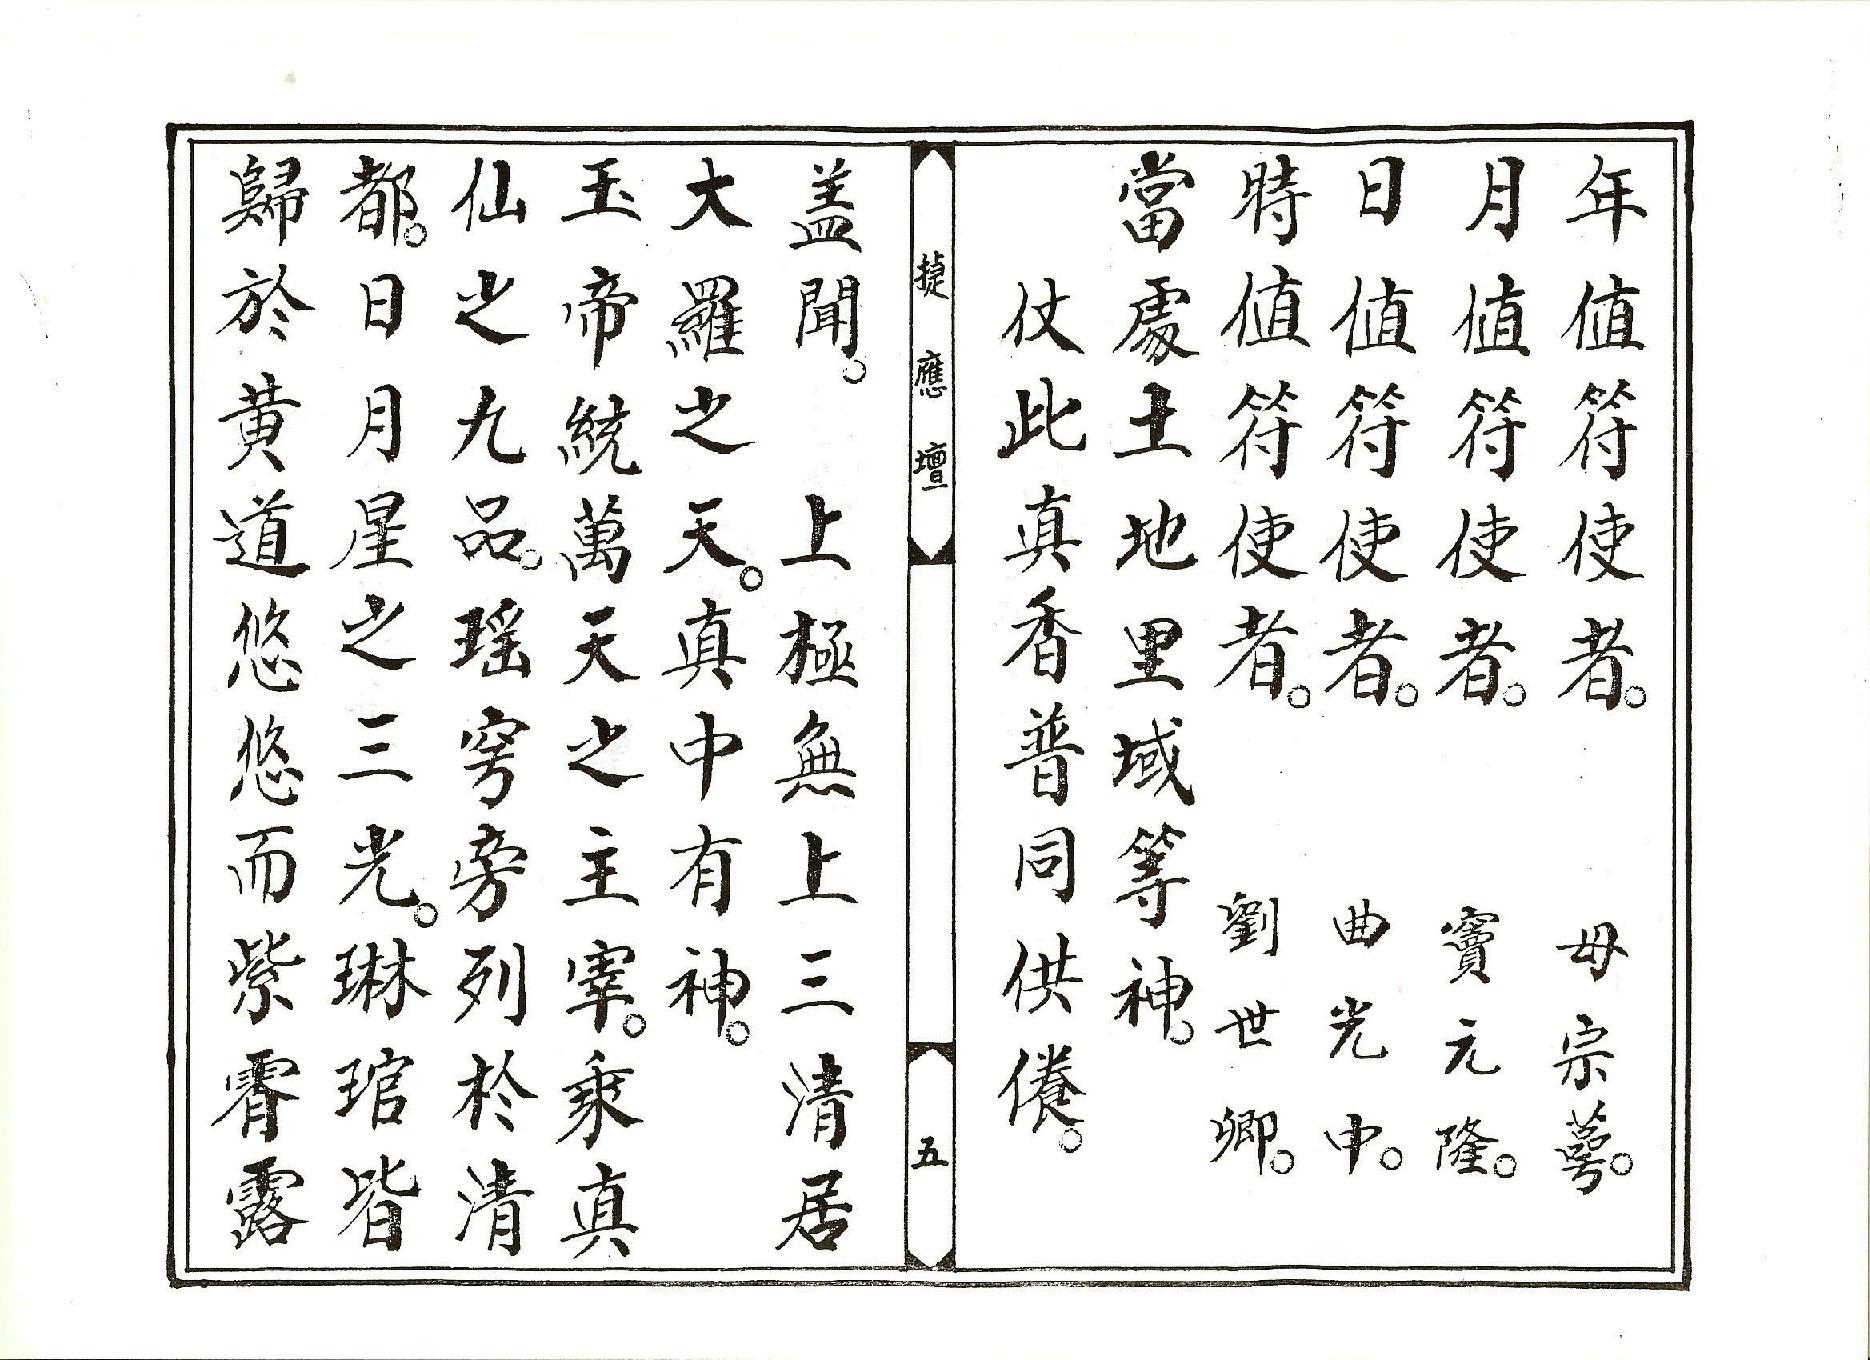 年值符使者。　毋宗蕚。
月值符使者。　竇元隆。
日值符使者。　曲光中。
時值符使者。　劉世卿。
當處土地里域等神。
仗此真香普同供餋。
捷應壇
五
盖聞。　上極無上三清居
大羅之天。真中有神。
玉帝統萬天之主宰。乘真
仙之九品。瑶穹旁列於清
都。日月星之三光。琳琯皆
歸於黄道悠悠而紫霄露